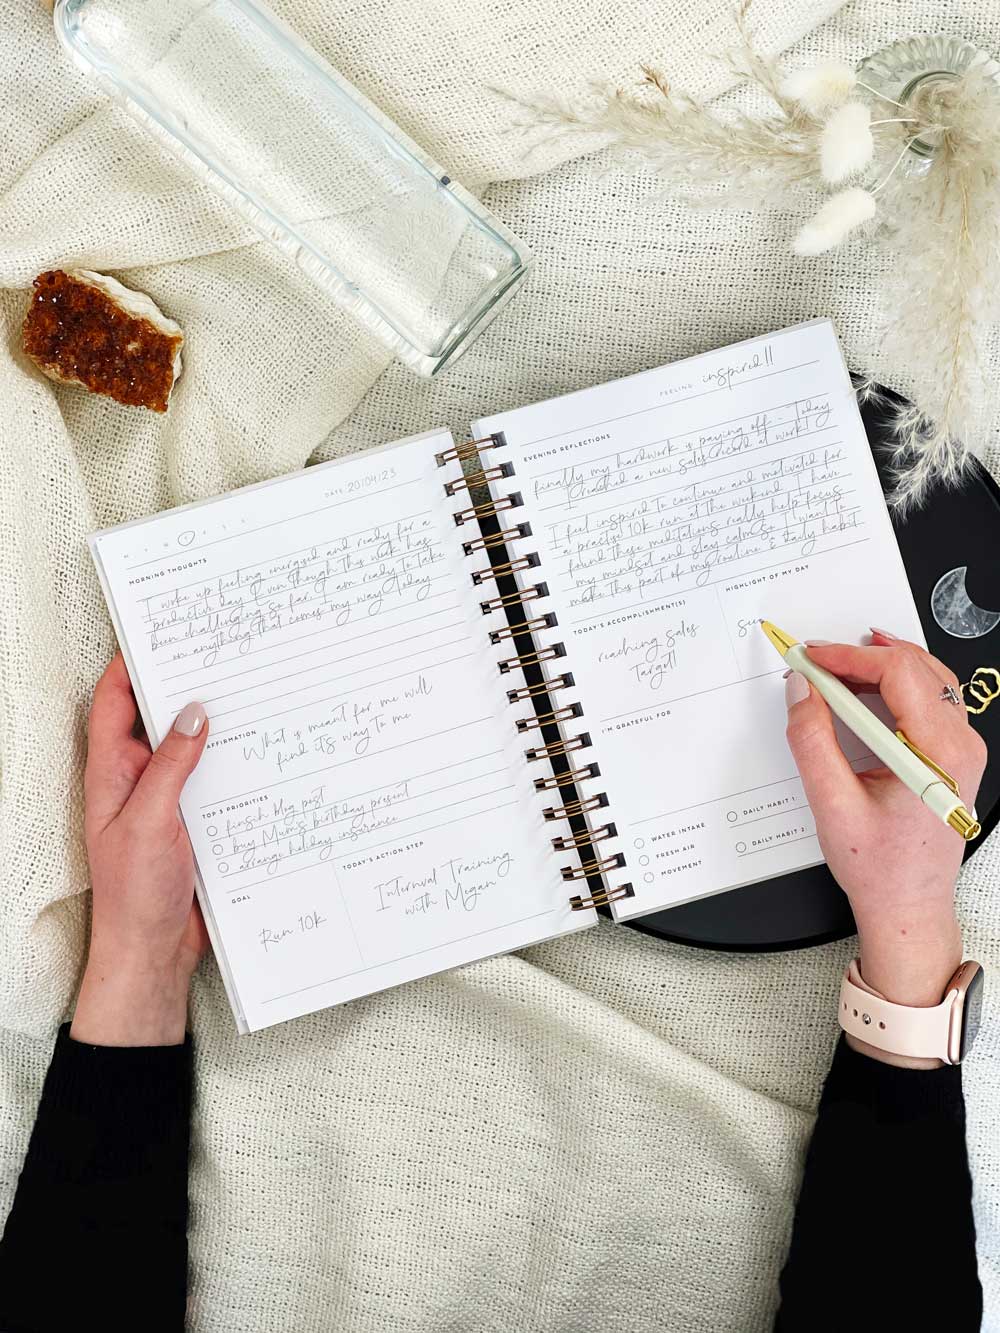 DATE 20104123
M T W T F S S
MORNING THOUGHTS
I woke up feeling energised and ready for a
productive day. Even though this week has
been challenging so far, I am ready to take
on anything that comes my way today
AFFIRMATION
What is meant for me will
find its way to me
TOP 3 PRIORITIES
finsih blog post
buy Mum's birthday present
arrange holiday insurance
GOAL
Run 10k
TODAY'S ACTION STEP
Internval Training
with Megan
FEELING inspired!!
EVENING REFLECTIONS
finally my hardwork is paying off - Today
I reached a new sales record at work!
I feel inspired to continue and motivated for
a practise 10k run at the weekend. I have
found these meditations really help focus
my mindset and stay calm so I want to
make this part of my routine & daily habit
TODAY'S ACCOMPLISHMENT(S)
reaching sales
target!
HIGHLIGHT OF MY DAY
I'M GRATEFUL FOR
WATER INTAKE
FRESH AIR
MOVEMENT
DAILY HABIT 1:
DAILY HABIT 2: